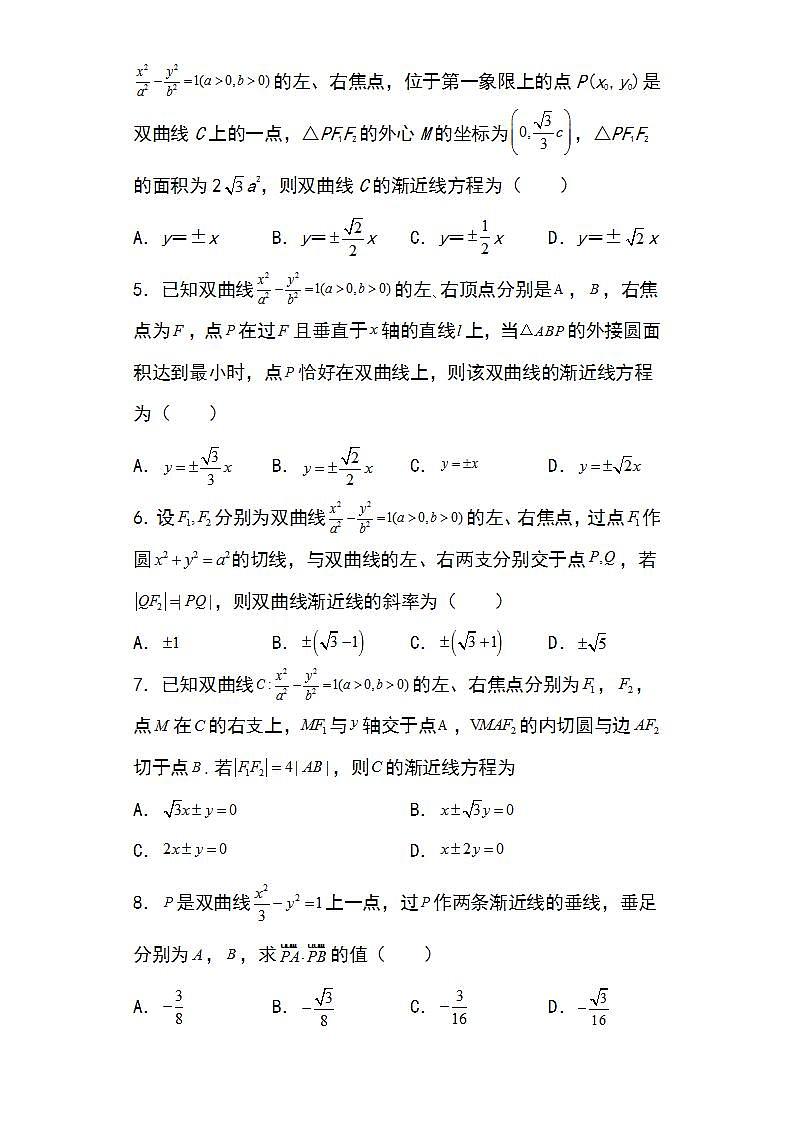 x²/a² − y²/b² =1(a>0,b>0)的左、右焦点，位于第一象限上的点 P(x₀,y₀)是
双曲线 C 上的一点，△PF₁F₂的外心 M 的坐标为(0, √3/3 c)，△PF₁F₂
的面积为 2√3a²，则双曲线 C 的渐近线方程为（　　）
A．y=±x　B．y=±√2/2 x　C．y=±1/2 x　D．y=±√2x
5．已知双曲线x²/a² − y²/b² =1(a>0,b>0)的左、右顶点分别是A，B，右焦
点为F，点P在过F且垂直于x轴的直线l上，当△ABP的外接圆面
积达到最小时，点P恰好在双曲线上，则该双曲线的渐近线方程
为（　　）
A．y=±√3/3 x　B．y=±√2/2 x　C．y=±x　D．y=±√2x
6．设F₁,F₂分别为双曲线x²/a² − y²/b² =1(a>0,b>0)的左、右焦点，过点F₁作
圆x²+y²=a²的切线，与双曲线的左、右两支分别交于点P,Q，若
|QF₂|=|PQ|，则双曲线渐近线的斜率为（　　）
A．±1　B．±(√3−1)　C．±(√3+1)　D．±√5
7．已知双曲线C:x²/a² − y²/b² =1(a>0,b>0)的左、右焦点分别为F₁，F₂，
点M在C的右支上，MF₁与y轴交于点A，VMAF₂的内切圆与边AF₂
切于点B．若|F₁F₂|=4|AB|，则C的渐近线方程为
A．√3x±y=0　B．x±√3y=0
C．2x±y=0　D．x±2y=0
8．P是双曲线x²/3 − y²=1上一点，过P作两条渐近线的垂线，垂足
分别为A，B，求PA·PB的值（　　）
A．−3/8　B．−√3/8　C．−3/16　D．−√3/16